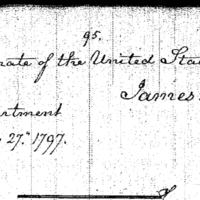 95.
nate of the United Sta
James
rtment
27. 1797.